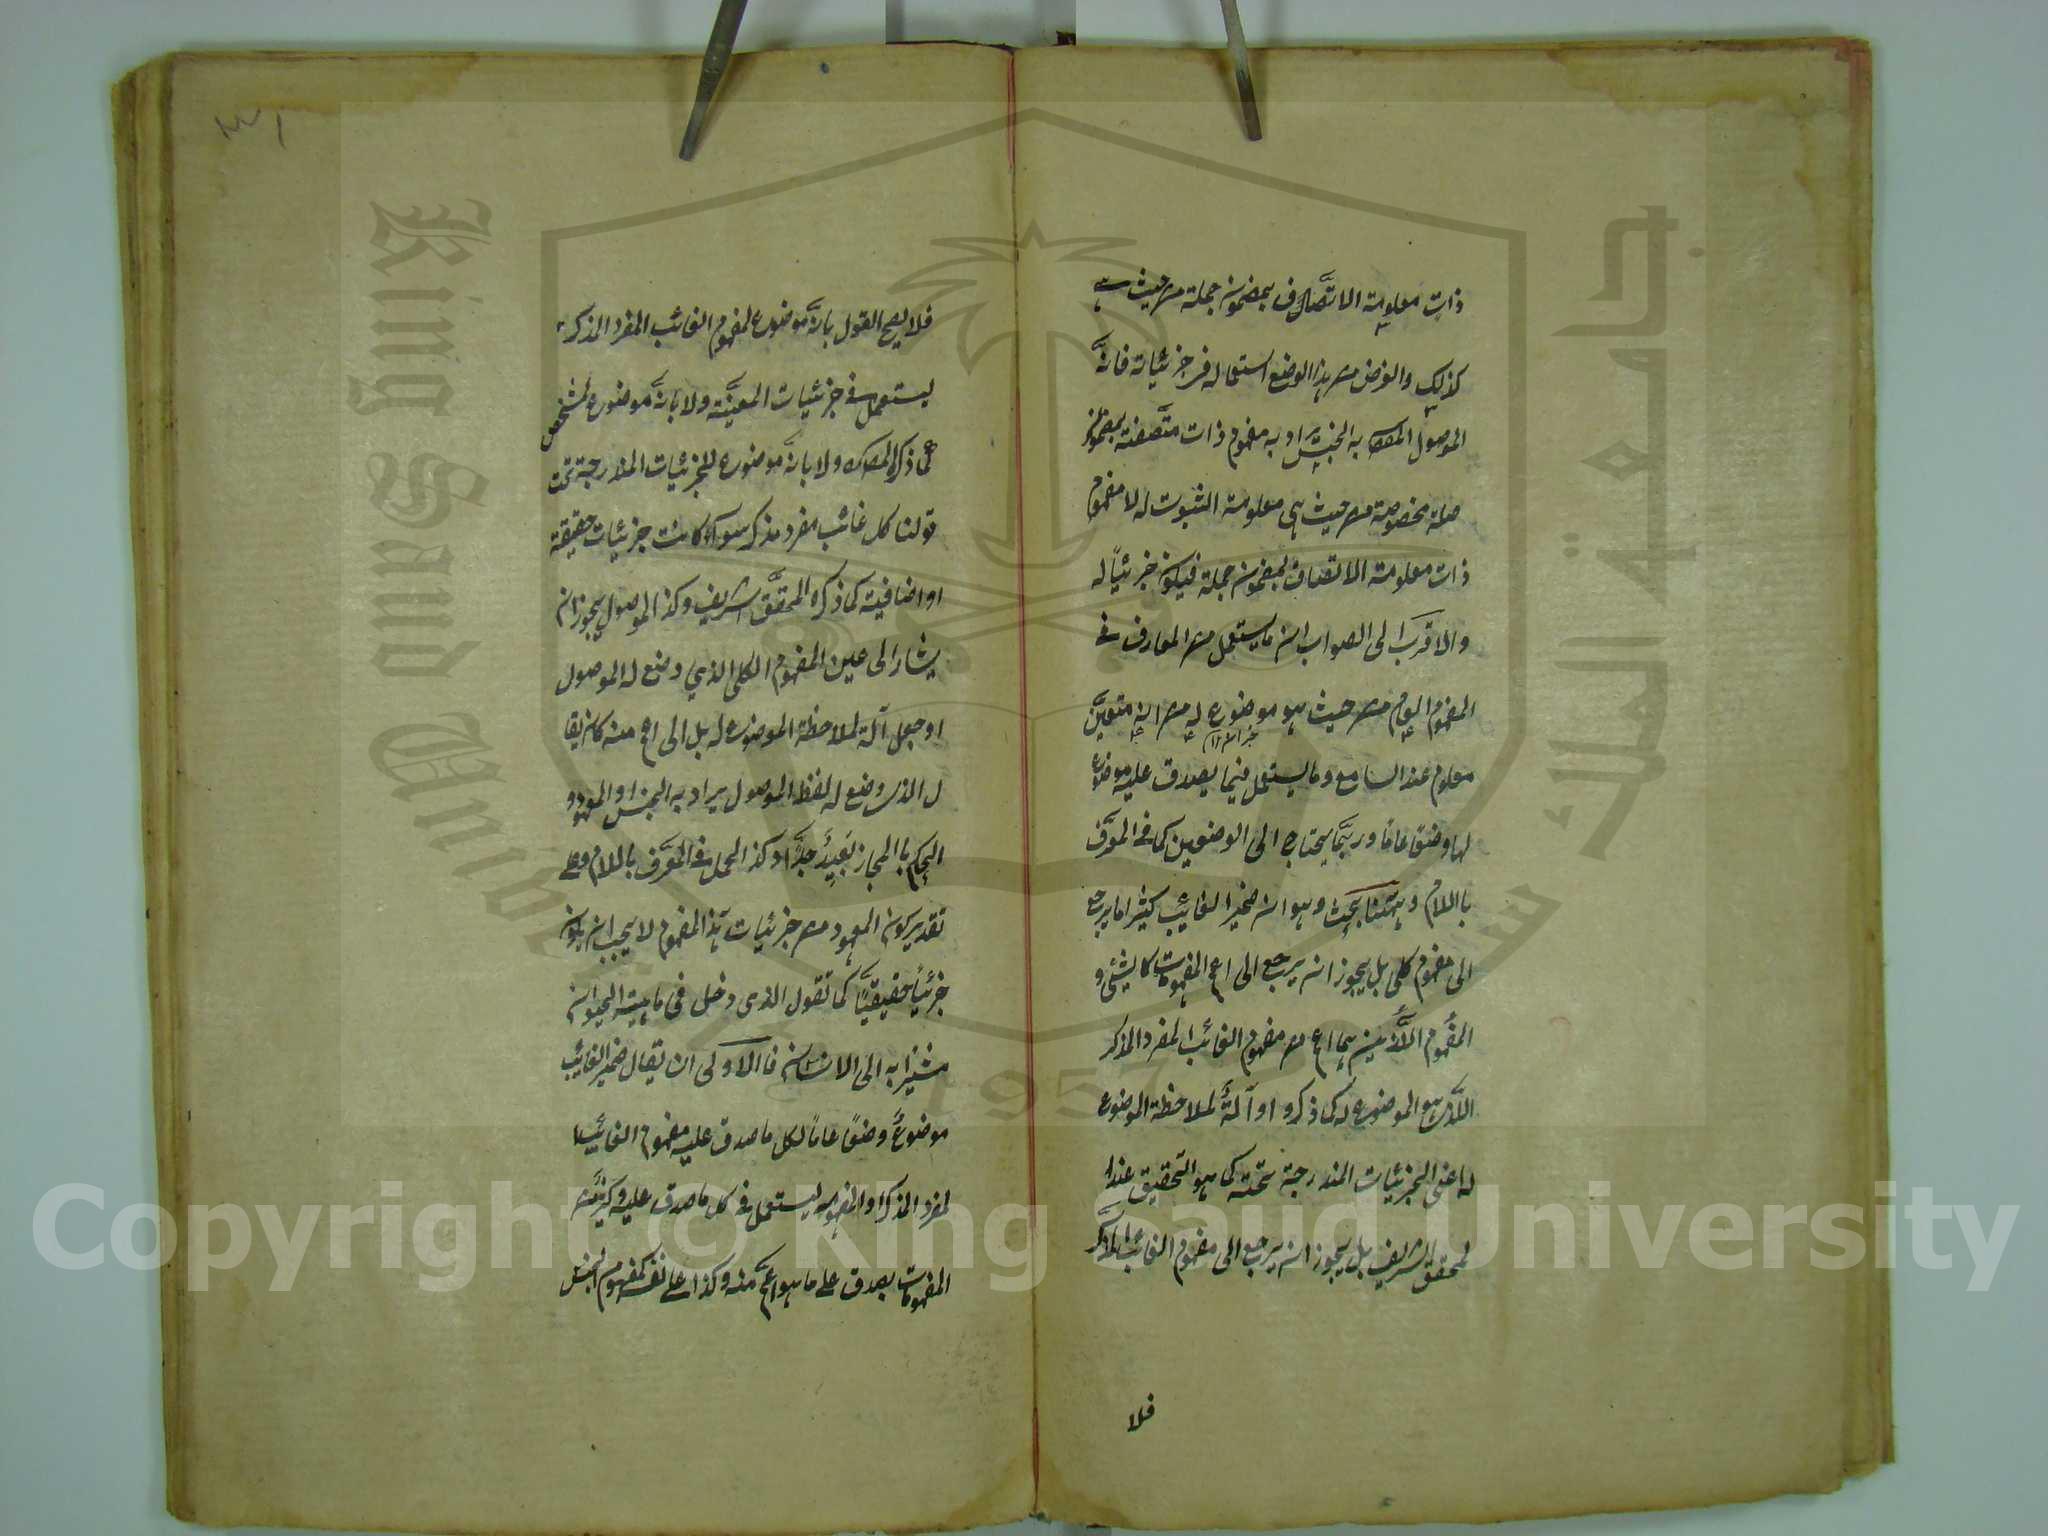 ذات معلومة الاتصاف بمضمون جملة من حيث هي
كذلك والغرض من هذا الوضع استعماله في جزئياته فانه
الموصول المص به الجنس يراد به مفهوم ذات متصفة بمضمون
صلة مخصوصة من حيث هي معلومة الثبوت له لا مفهوم
ذات معلومة الاتصاف بمضمون جملة فيكون جزئياً له
والاقرب الى الصواب ان ما يستعمل من المعارف في
المفهوم العام من حيث هو موضوع له من انه متعين
معلوم عند السامع وما يستعمل فيما يصدق عليه موضوع
لها وضعا عاما وربما يحتاج الى الوضعين كما في المعرف
باللام وههنا بحث وهو ان ضمير الغائب كثيرا ما يرجع
الى مفهوم كلي بل يجوز ان يرجع الى اعم المفهومات كالشئ و
المفهوم اللذين هما اعم من مفهوم الغائب المفرد المذكر
الذي هو الموضوع له كما ذكروا او آلة لملاحظة الموضوع
له اعنى الجزئيات المندرجة تحته كما هو التحقيق عند ا
لمحقق الشريف بل يجوز ان يرجع الى مفهوم الغائب المذكر
فلا
فلا يصح القول بانه موضوع لمفهوم الغائب المفرد المذكر
ليستعمل في جزئيات المعينة ولا بانه موضوع لمشخص
كما ذكره المص ولا بانه موضوع للجزئيات المندرجة تحت
قولنا كل غائب مفرد مذكر سواء كانت جزئيات حقيقة
او اضافية كما ذكره المحقق الشريف وكذا الموصول يجوز ان
يشار الى عين المفهوم الكلي الذي وضع له الموصول
او جعل آلة لملاحظة الموضوع له بل الى اعم منه كان يقا
ل الذي وضع له لفظ الموصول يراد به الجنس او المعهود و
الحكم بالمجاز بعيد جدا وكذا الحمل في المعرف باللام وعلى
تقدير كون المعهود من جزئيات هذا المفهوم لا يجب ان يكون
جزئيا حقيقيا كما تقول الذي دخل في ماهيته الحيوان
مشيرا به الى الانسان فالاولى ان يقال ضمير الغائب
موضوع وضعا عاما لكل ما صدق عليه مفهوم الغائب ا
لمفرد المذكر او المفهوم ليستعمل في كل ما صدق عليه وكثير من
المفهومات يصدق على ما هو اعم منه وكذا على نفسه كمفهوم الجنس